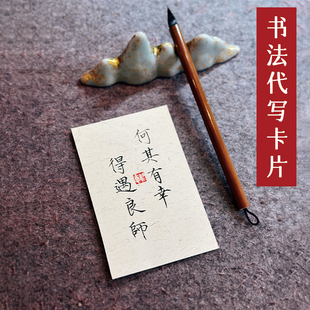 书法代写卡片
何其有幸
得遇良師